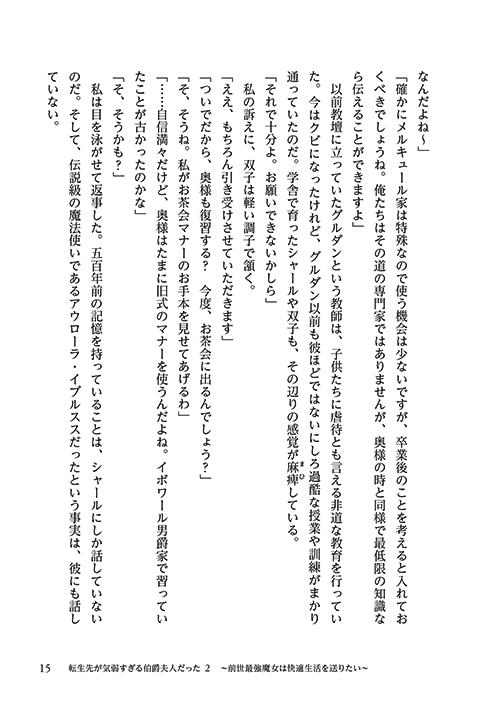 なんだよね～」
「確かにメルキュール家は特殊なので使う機会は少ないですが、卒業後のことを考えると入れてお
くべきでしょうね。俺たちはその道の専門家ではありませんが、奥様の時と同様で最低限の知識な
ら伝えることができますよ」
以前教壇に立っていたグルダンという教師は、子供たちに虐待とも言える非道な教育を行ってい
た。今はクビになったけれど、グルダン以前も彼ほどではないにしろ過酷な授業や訓練がまかり
通っていたのだ。学舎で育ったシャールや双子も、その辺りの感覚が麻痺している。
まひ
「それで十分よ。お願いできないかしら」
私の訴えに、双子は軽い調子で頷く。
「ええ、もちろん引き受けさせていただきます」
「ついでだから、奥様も復習する？　今度、お茶会に出るんでしょう？」
「そ、そうね。私がお茶会マナーのお手本を見せてあげるわ」
「……自信満々だけど、奥様はたまに旧式のマナーを使うんだよね。イボワール男爵家で習ってい
たことが古かったのかな」
「そ、そうかも？」
私は目を泳がせて返事した。五百年前の記憶を持っていることは、シャールにしか話していない
のだ。そして、伝説級の魔法使いであるアウローラ・イブルススだったという事実は、彼にも話し
ていない。
15　転生先が気弱すぎる伯爵夫人だった 2　～前世最強魔女は快適生活を送りたい～